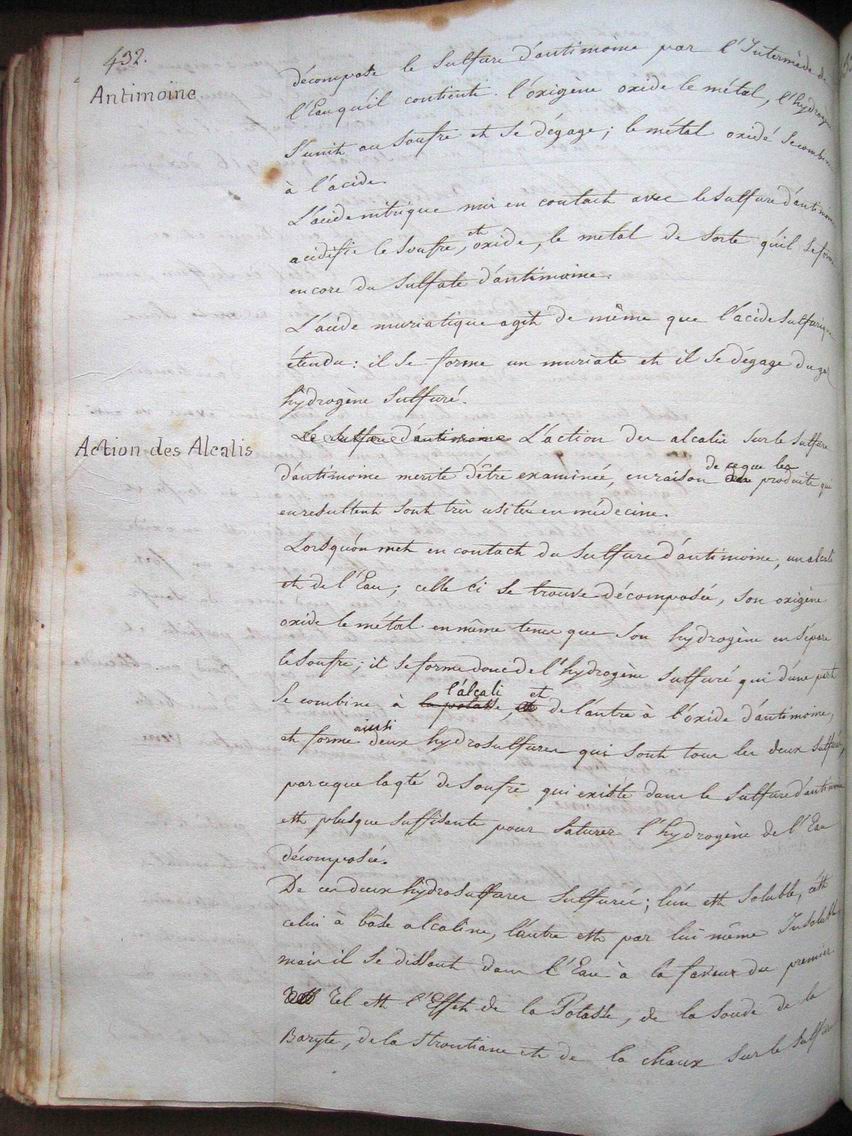 432.
Antimoine
décompose le Sulfure d'antimoine par l'Intermède de
l'Eau qu'il contient. l'oxigène oxide le métal, l'hydrogène
S'unit au Soufre et se dégage; le métal oxidé se combine
à l'acide.
L'acide nitrique mis en contact avec le Sulfure d'antimoine
acidifie le Soufre, et oxide, le metal de sorte qu'il se forme
encore du Sulfate d'antimoine.
L'acide muriatique agit de même que l'acide Sulfurique
étendu: il se forme un muriate et il se dégage du gaz
hydrogène Sulfuré.
Action des Alcalis
Le Sulfure d'antimoine L'action des alcalis sur le Sulfure
d'antimoine merite d'être examinée, en raison de ce que les produits qui
en resultent sont très usités en médecine.
Lorsqu'on met en contact du Sulfure d'antimoine, un alcali
et de l'Eau; celle ci se trouve décomposée, son oxigène
oxide le métal en même tems que son hydrogène en sépare
le Soufre; il se forme donc de l'hydrogène Sulfuré qui d'une part
se combine à la potasse l'alcali, et de l'autre à l'oxide d'antimoine,
et forme ainsi deux hydrosulfures qui sont tous les deux sulfurés,
parceque la qté de Soufre qui existe dans le Sulfure d'antimoine
est plusque suffisante pour saturer l'hydrogène de l'Eau
décomposée.
De ces deux hydrosulfures Sulfurés; l'un est soluble, c'est
celui à base alcaline, l'autre est par lui même Insoluble,
mais il se dissout dans l'Eau à la faveur du premier
Tel est l'Effet de la Potasse, de la Soude de la
Baryte, de la Strontiane et de la chaux sur le Sulfure